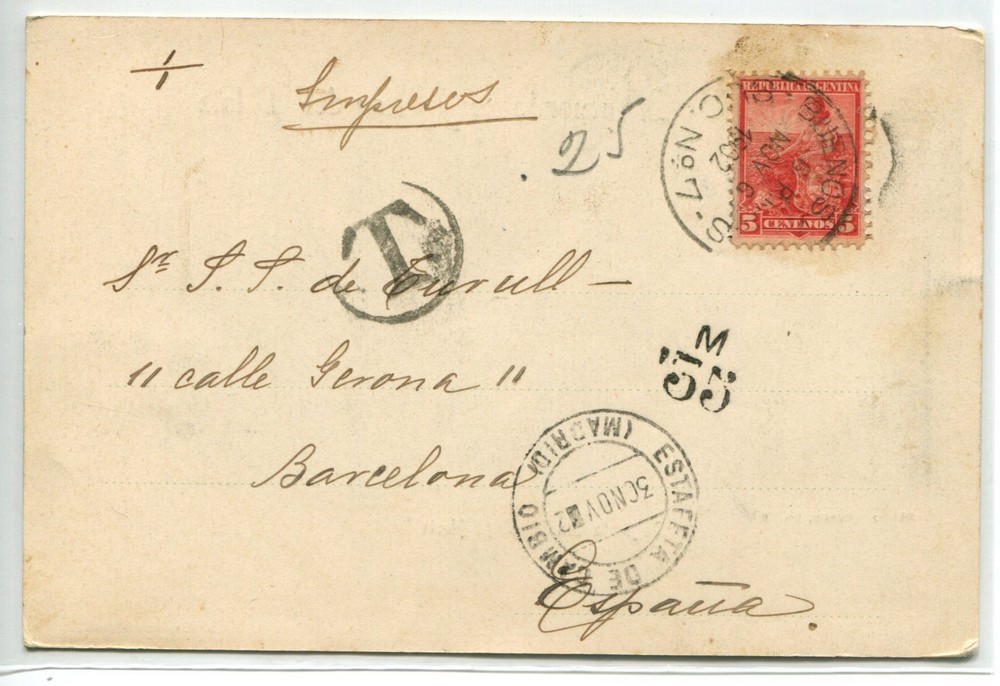 1/1
Impresos
.25
REPUBLICA ARGENTINA
5 CENTAVOS 5
BUENOS
NOV 6
1902
T
Sr. S. S. de Turull —
" calle Gerona "
Barcelona
M
ESTAFETA DE CAMBIO (MADRID)
30 NOV 02
España.